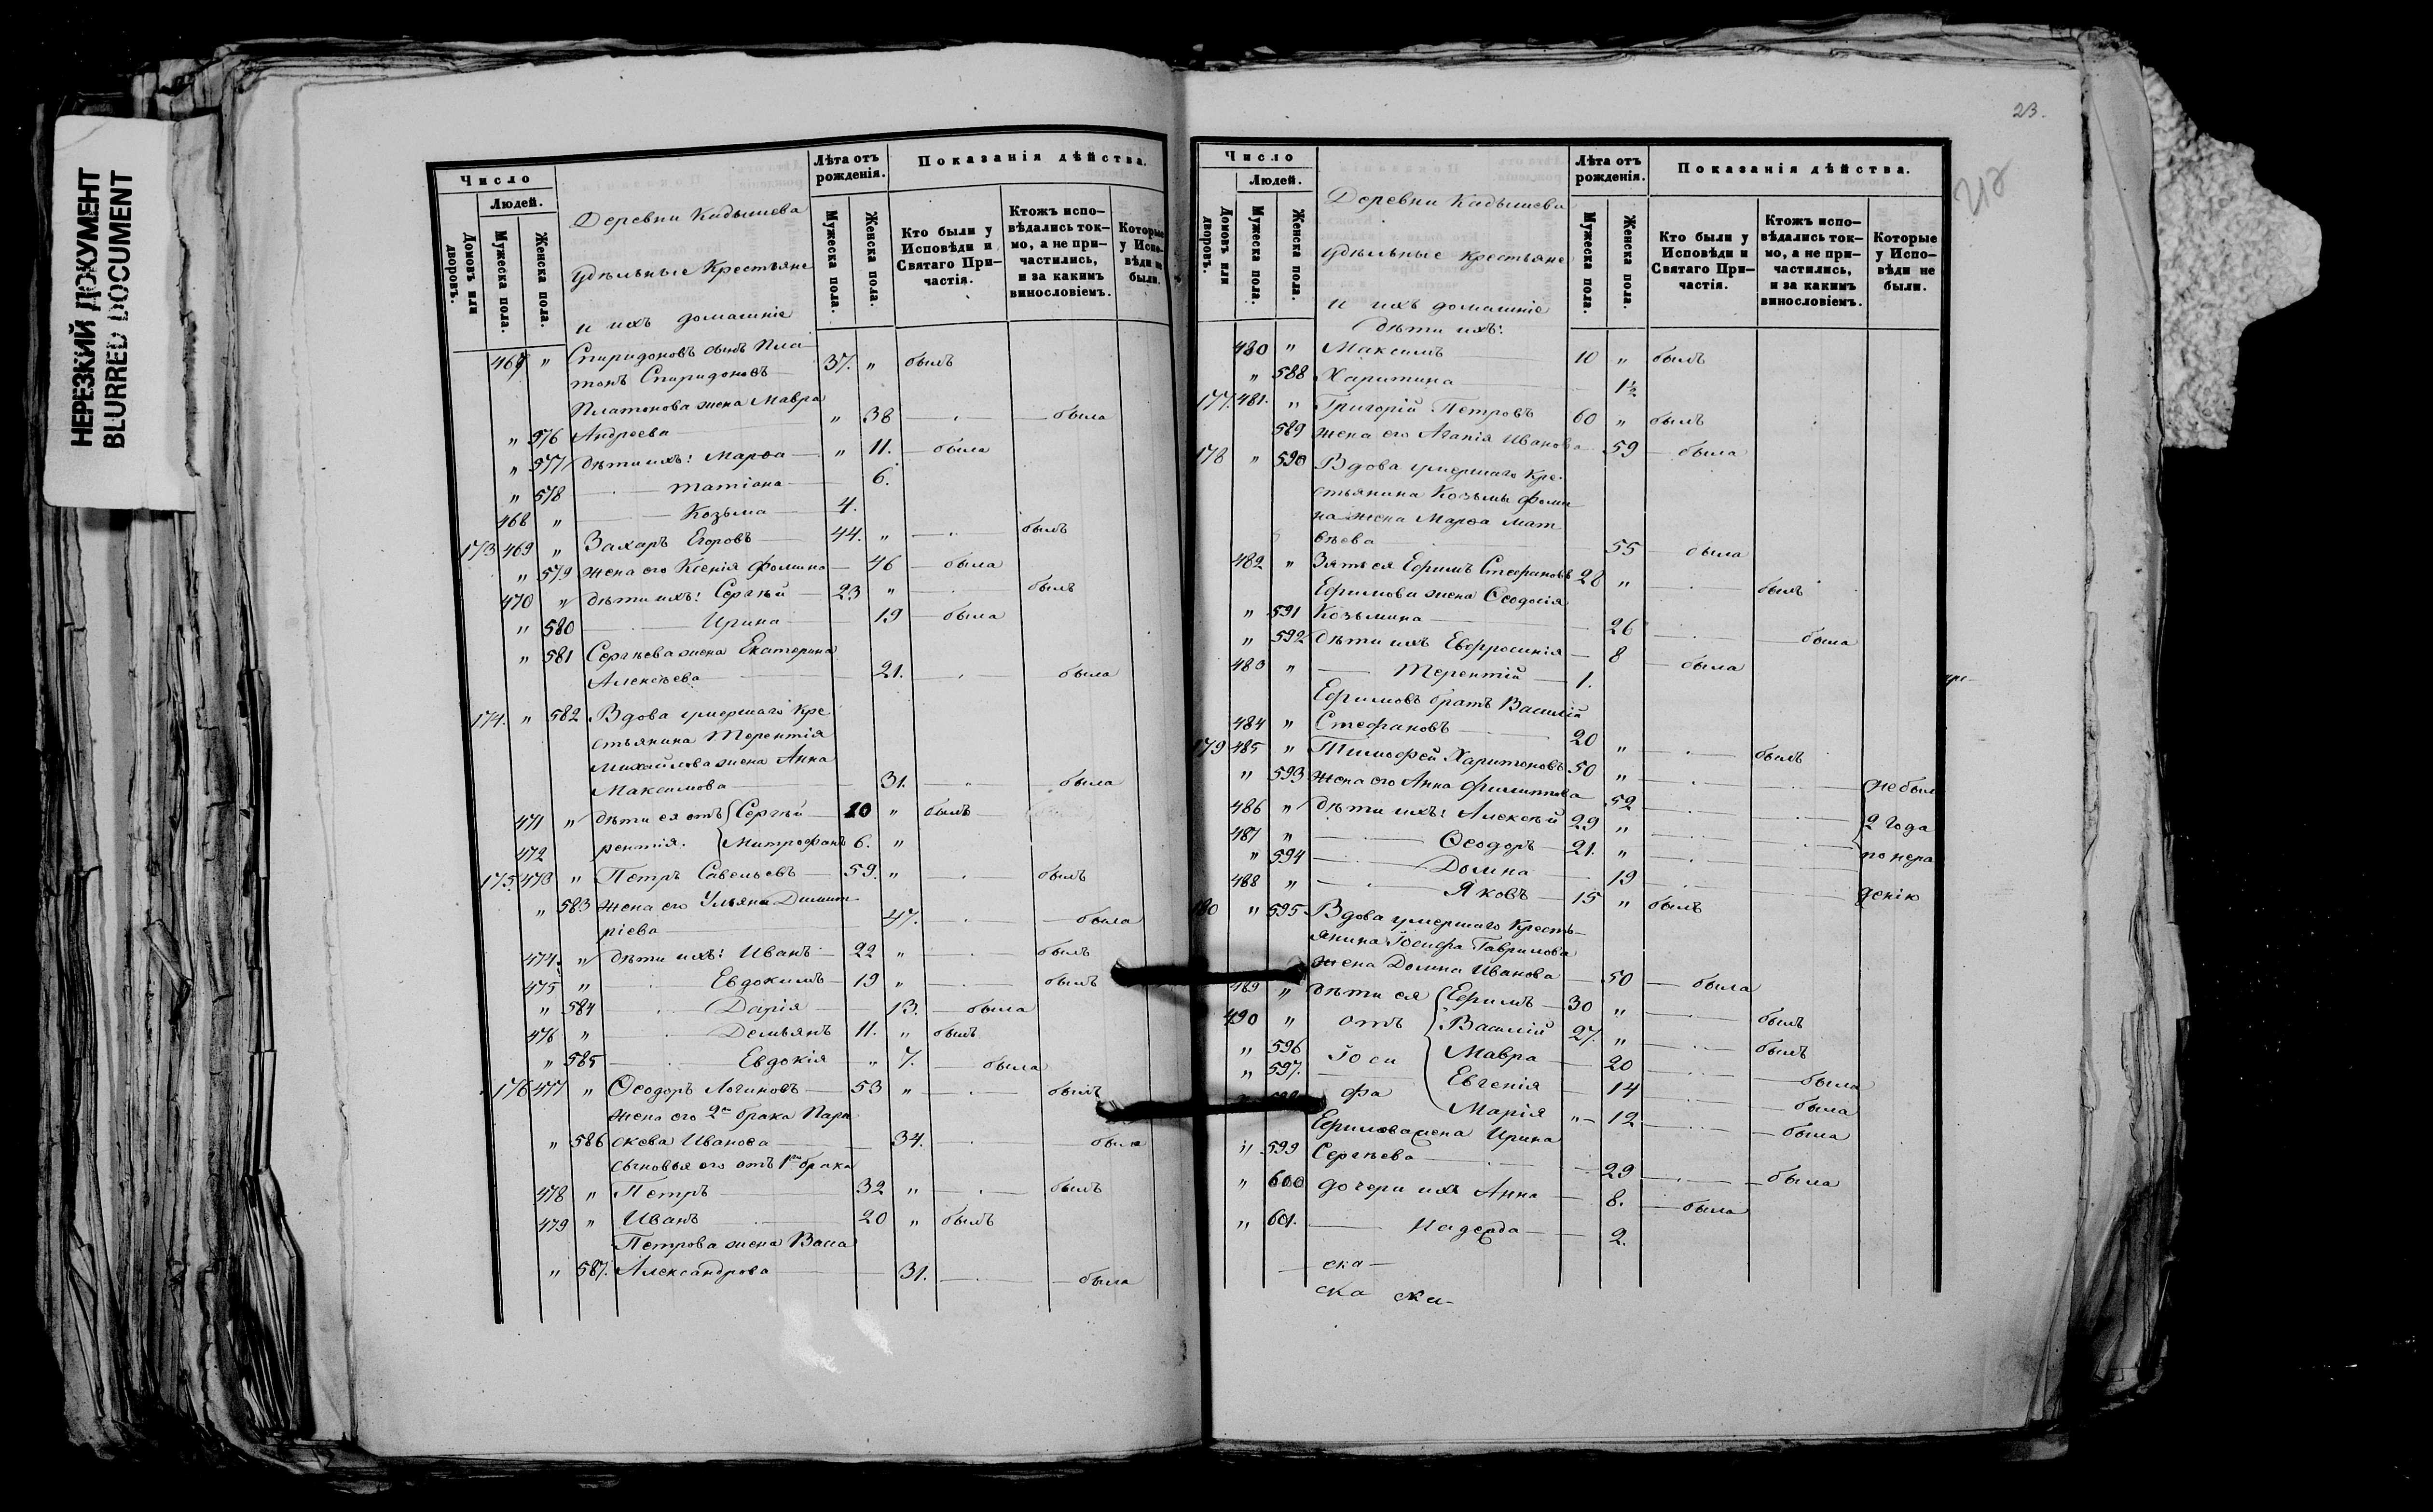 НЕРЕЗКИЙ ДОКУМЕНТ
BLURRED DOCUMENT
Число
Людей.
Домовъ или дворовъ.
Мужеска пола.
Женска пола.
Деревни Кадышева
удѣльные Крестьяне
и ихъ домашніе
Лѣта отъ рожденія.
Мужеска пола.
Женска пола.
Показанія дѣйства.
Кто были у Исповѣди и Святаго Причастія.
Ктожъ исповѣдались токмо, а не причастились, и за какимъ винословіемъ.
Которые у Исповѣди не были.
467 " Спиридоновъ сынъ Пла-
тонъ Спиридоновъ 37. " былъ
Платонова жена Мавра
" 576 Андреева " 38 была
" 577 дѣти ихъ: Марѳа " 11. была
" 578 Татіана 6.
468 " Козьма 4.
173 469 " Захаръ Егоровъ 44. " былъ
" 579 жена его Ксенія Фомина 46 была
470 " дѣти ихъ: Сергѣй 23 " былъ
" 580 Ирина 19 была
" 581 Сергѣева жена Екатерина
Алексѣева 21. была
174. " 582 Вдова умершаго Кре
стьянина Терентія
Михайлова жена Анна
Максимова 31. была
471 " дѣти ея отъ Сергѣй 10 " былъ
472 рентія. Митрофанъ 6. "
175. 473 " Петръ Савельевъ 59. " былъ
" 583 жена его Ульяна Димит
ріева 47. была
474. " дѣти ихъ: Иванъ 22 " былъ
475 " Евдокимъ 19 " былъ
" 584 Дарія 13. была
476 " Демьянъ 11. " былъ
" 585 Евдокія " 7. была
176 477 " Ѳеодоръ Логиновъ 53 " былъ
жена его 2го брака Пара
" 586 скева Иванова 34. была
сыновья его отъ 1го брака
478 " Петръ 32 " былъ
479 " Иванъ 20 " былъ
Петрова жена Васса
" 587. Александрова 31. была
23.
217
Число
Людей.
Домовъ или дворовъ.
Мужеска пола.
Женска пола.
Деревни Кадышева
удѣльные Крестьяне
и ихъ домашніе
Лѣта отъ рожденія.
Мужеска пола.
Женска пола.
Показанія дѣйства.
Кто были у Исповѣди и Святаго Причастія.
Ктожъ исповѣдались токмо, а не причастились, и за какимъ винословіемъ.
Которые у Исповѣди не были.
дѣти ихъ:
480 " Максимъ 10 " былъ
" 588 Харитина 1½
177. 481. " Григорій Петровъ 60 " былъ
589 жена его Агапія Иванова 59 была
178 " 590 Вдова умершаго Кре-
стьянина Козьмы Фоми
на жена Марѳа Мат
вѣева 55 была
482 " Зять ея Ефимъ Стефановъ 28 " былъ
Ефимова жена Ѳеодосія
" 591 Козьмина 26 была
" 592 дѣти ихъ Евфросинія 8 была
483 " Терентій 1.
Ефимовъ братъ Василій
484 " Стефановъ 20 " былъ
179 485 " Тимофей Харитоновъ 50 " не был
" 593 жена его Анна Филиппова 52
486 " дѣти ихъ: Алексѣй 29 " 2 года
487 " Ѳеодоръ 21. " по нера
" 594 Домна 19
488 " Яковъ 15 " былъ дѣнію
180 " 595 Вдова умершаго Кресть-
янина Іосифа Гаврилова
жена Домна Иванова 50 была
489 " дѣти ея Ефимъ 30 " былъ
490 " отъ Василій 27. " былъ
" 596 Іоси Мавра 20 была
" 597. Евгенія 14 была
фа Марія " 12 была
Ефимова жена Ирина
" 599 Сергѣева 29 была
" 600 дочери ихъ Анна 8. была
" 601. Надежда 2.
ска
ска